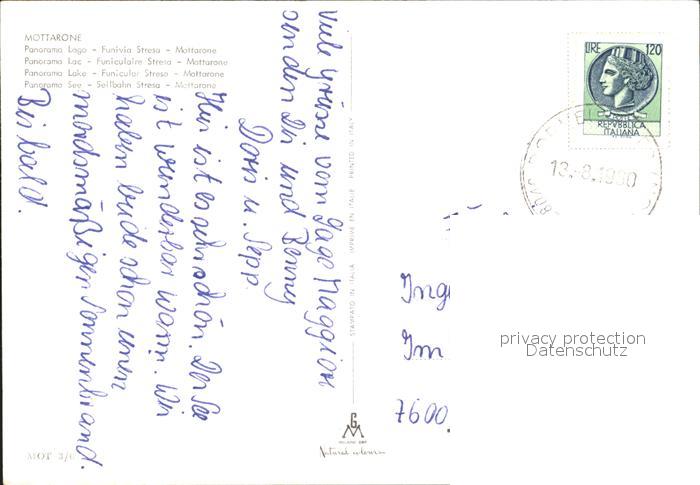 MOTTARONE
Panorama Lago - Funivia Stresa - Mottarone
Panorama Lac - Funiculaire Stresa - Mottarone
Panorama Lake - Funicular Stresa - Mottarone
Panorama See - Seilbahn Stresa - Mottarone
Viele Grüsse vom Lago Maggiore
senden Dir und Benny
Doris u. Sepp.
Hier ist es sehr schön. Der See
ist wunderbar warm. Wir
haben beide schon einen
mordsmäßigen Sonnenbrand.
Bis bald.
STAMPATO IN ITALIA IMPRIME EN ITALIE PRINTED IN ITALY
LIRE 120
REPVBBLICA
ITALIANA
13.-8.1980
Ing
Im
7600
privacy protection
Datenschutz
MOT 3/6
Natural colours